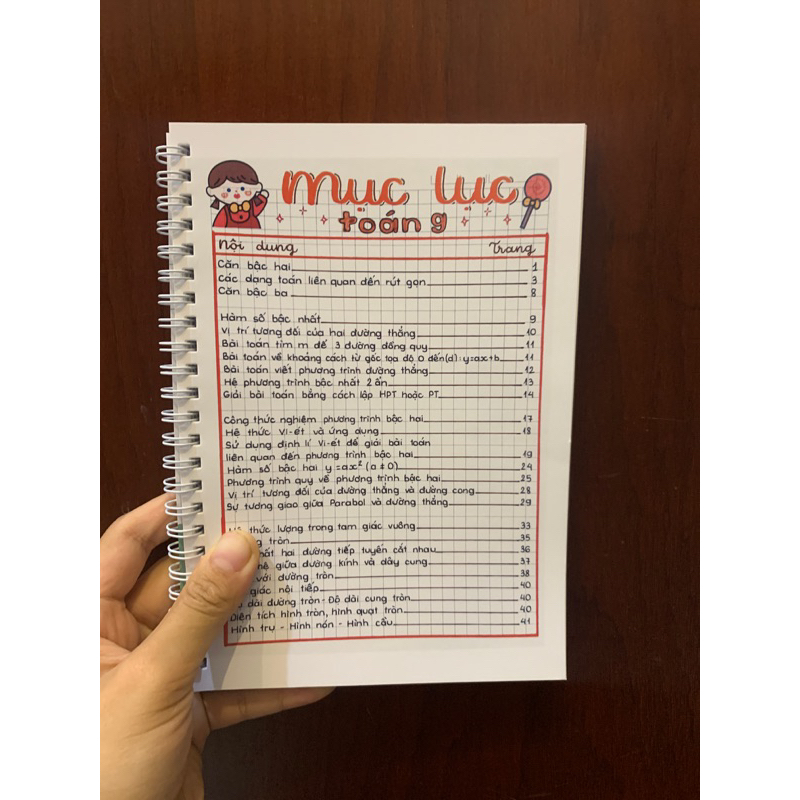 mục lục
toán 9
Nội dung Trang
Căn bậc hai 1
Các dạng toán liên quan đến rút gọn 3
Căn bậc ba 8
Hàm số bậc nhất 9
Vị trí tương đối của hai đường thẳng 10
Bài toán tìm m để 3 đường đồng quy 11
Bài toán về khoảng cách từ gốc tọa độ O đến (d): y=ax+b 11
Bài toán viết phương trình đường thẳng 12
Hệ phương trình bậc nhất 2 ẩn 13
Giải bài toán bằng cách lập HPT hoặc PT 14
Công thức nghiệm phương trình bậc hai 17
Hệ thức Vi-ét và ứng dụng 18
Sử dụng định lí Vi-ét để giải bài toán
liên quan đến phương trình bậc hai 19
Hàm số bậc hai y=ax² (a≠0) 24
Phương trình quy về phương trình bậc hai 25
Vị trí tương đối của đường thẳng và đường cong 28
Sự tương giao giữa Parabol và đường thẳng 29
thức lượng trong tam giác vuông 33
tròn 35
hai đường tiếp tuyến cắt nhau 36
hệ giữa đường kính và dây cung 37
với đường tròn 38
giác nội tiếp 40
dài đường tròn - Độ dài cung tròn 40
Diện tích hình tròn, hình quạt tròn 40
Hình trụ - Hình nón - Hình cầu 41